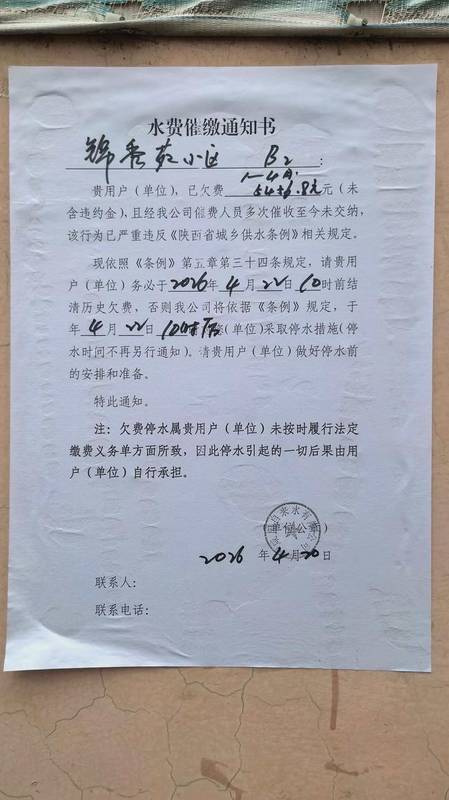 水费催缴通知书
锦香苑小区 B2 :
1-4月
贵用户（单位），已欠费 5436.8元 元（未
含违约金），且经我公司催费人员多次催收至今未交纳，
该行为已严重违反《陕西省城乡供水条例》相关规定。
现依照《条例》第五章第三十四条规定，请贵用
户（单位）务必于2026年4月22日10时前结
清历史欠费，否则我公司将依据《条例》规定，于
年4月22日10时后 （单位）采取停水措施（停
水时间不再另行通知）。请贵用户（单位）做好停水前
的安排和准备。
特此通知。
注：欠费停水属贵用户（单位）未按时履行法定
缴费义务单方面所致，因此停水引起的一切后果由用
户（单位）自行承担。
（单位公 ）
自来水有限公司
2026 年4月20日
联系人：
联系电话：